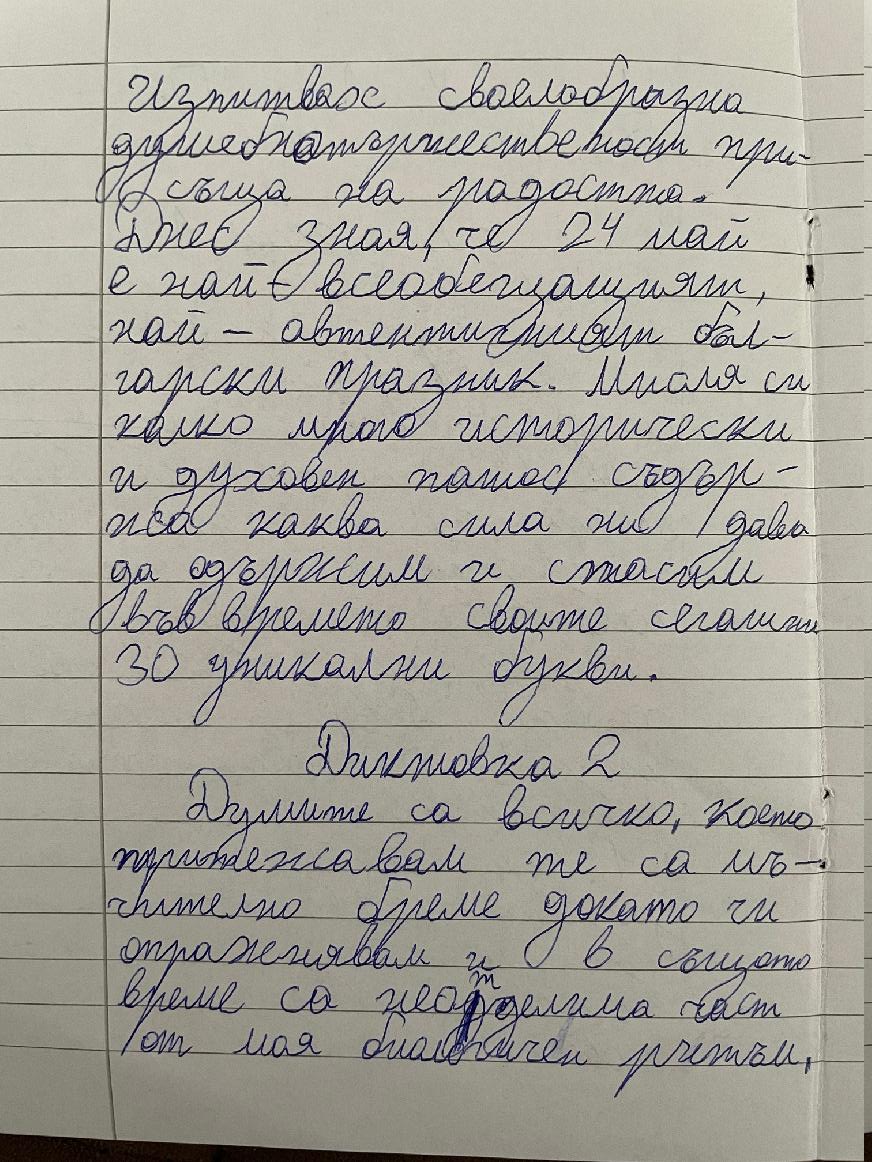 Изпитвах своеобразна
душевна тържественост при-
съща на радостта.
Днес зная, че 24 май
е най-всеобещащият,
най-автентичният бъл-
гарски празник. Мисля си
колко много исторически
и духовен патос съдър-
жа каква сила ни дава
да одържим и спасим
във времето своите сегашни
30 уникални букви.
Диктовка 2
Думите са всичко, което
притежавам те са мъ-
чително бреме докато ги
отраженявам и в същото
време са неотделима част
от моя биологичен ритъм,